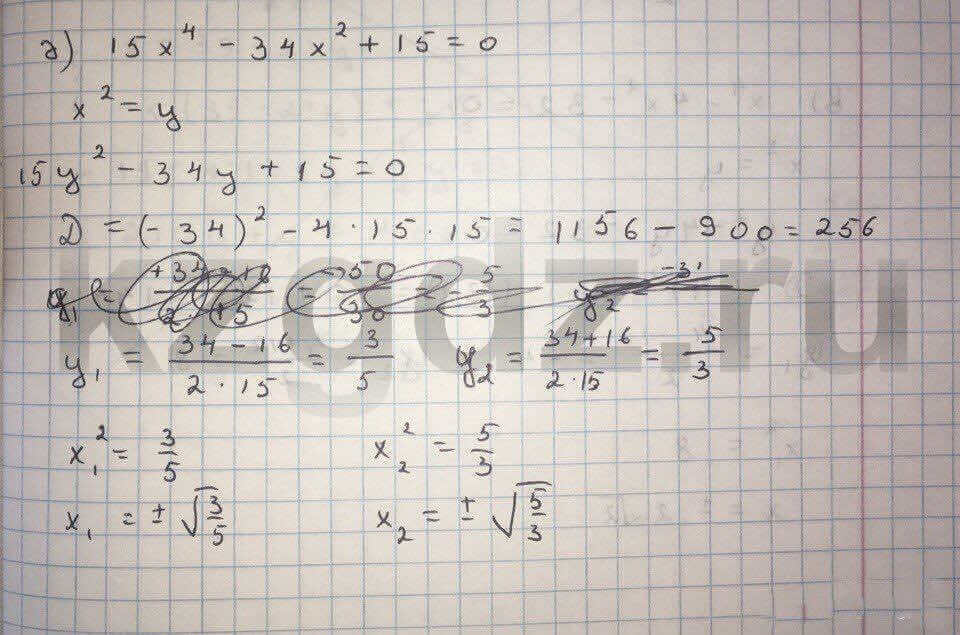 д) 15x⁴ - 34x² + 15 = 0
x² = y
15y² - 34y + 15 = 0
D = (-34)² - 4 · 15 · 15 = 1156 - 900 = 256
y₁ = (34 - 16)/(2 · 15) = 3/5 y₂ = (34 + 16)/(2 · 15) = 5/3
x₁² = 3/5 x₂² = 5/3
x₁ = ± √(3/5) x₂ = ± √(5/3)
kzgdz.ru